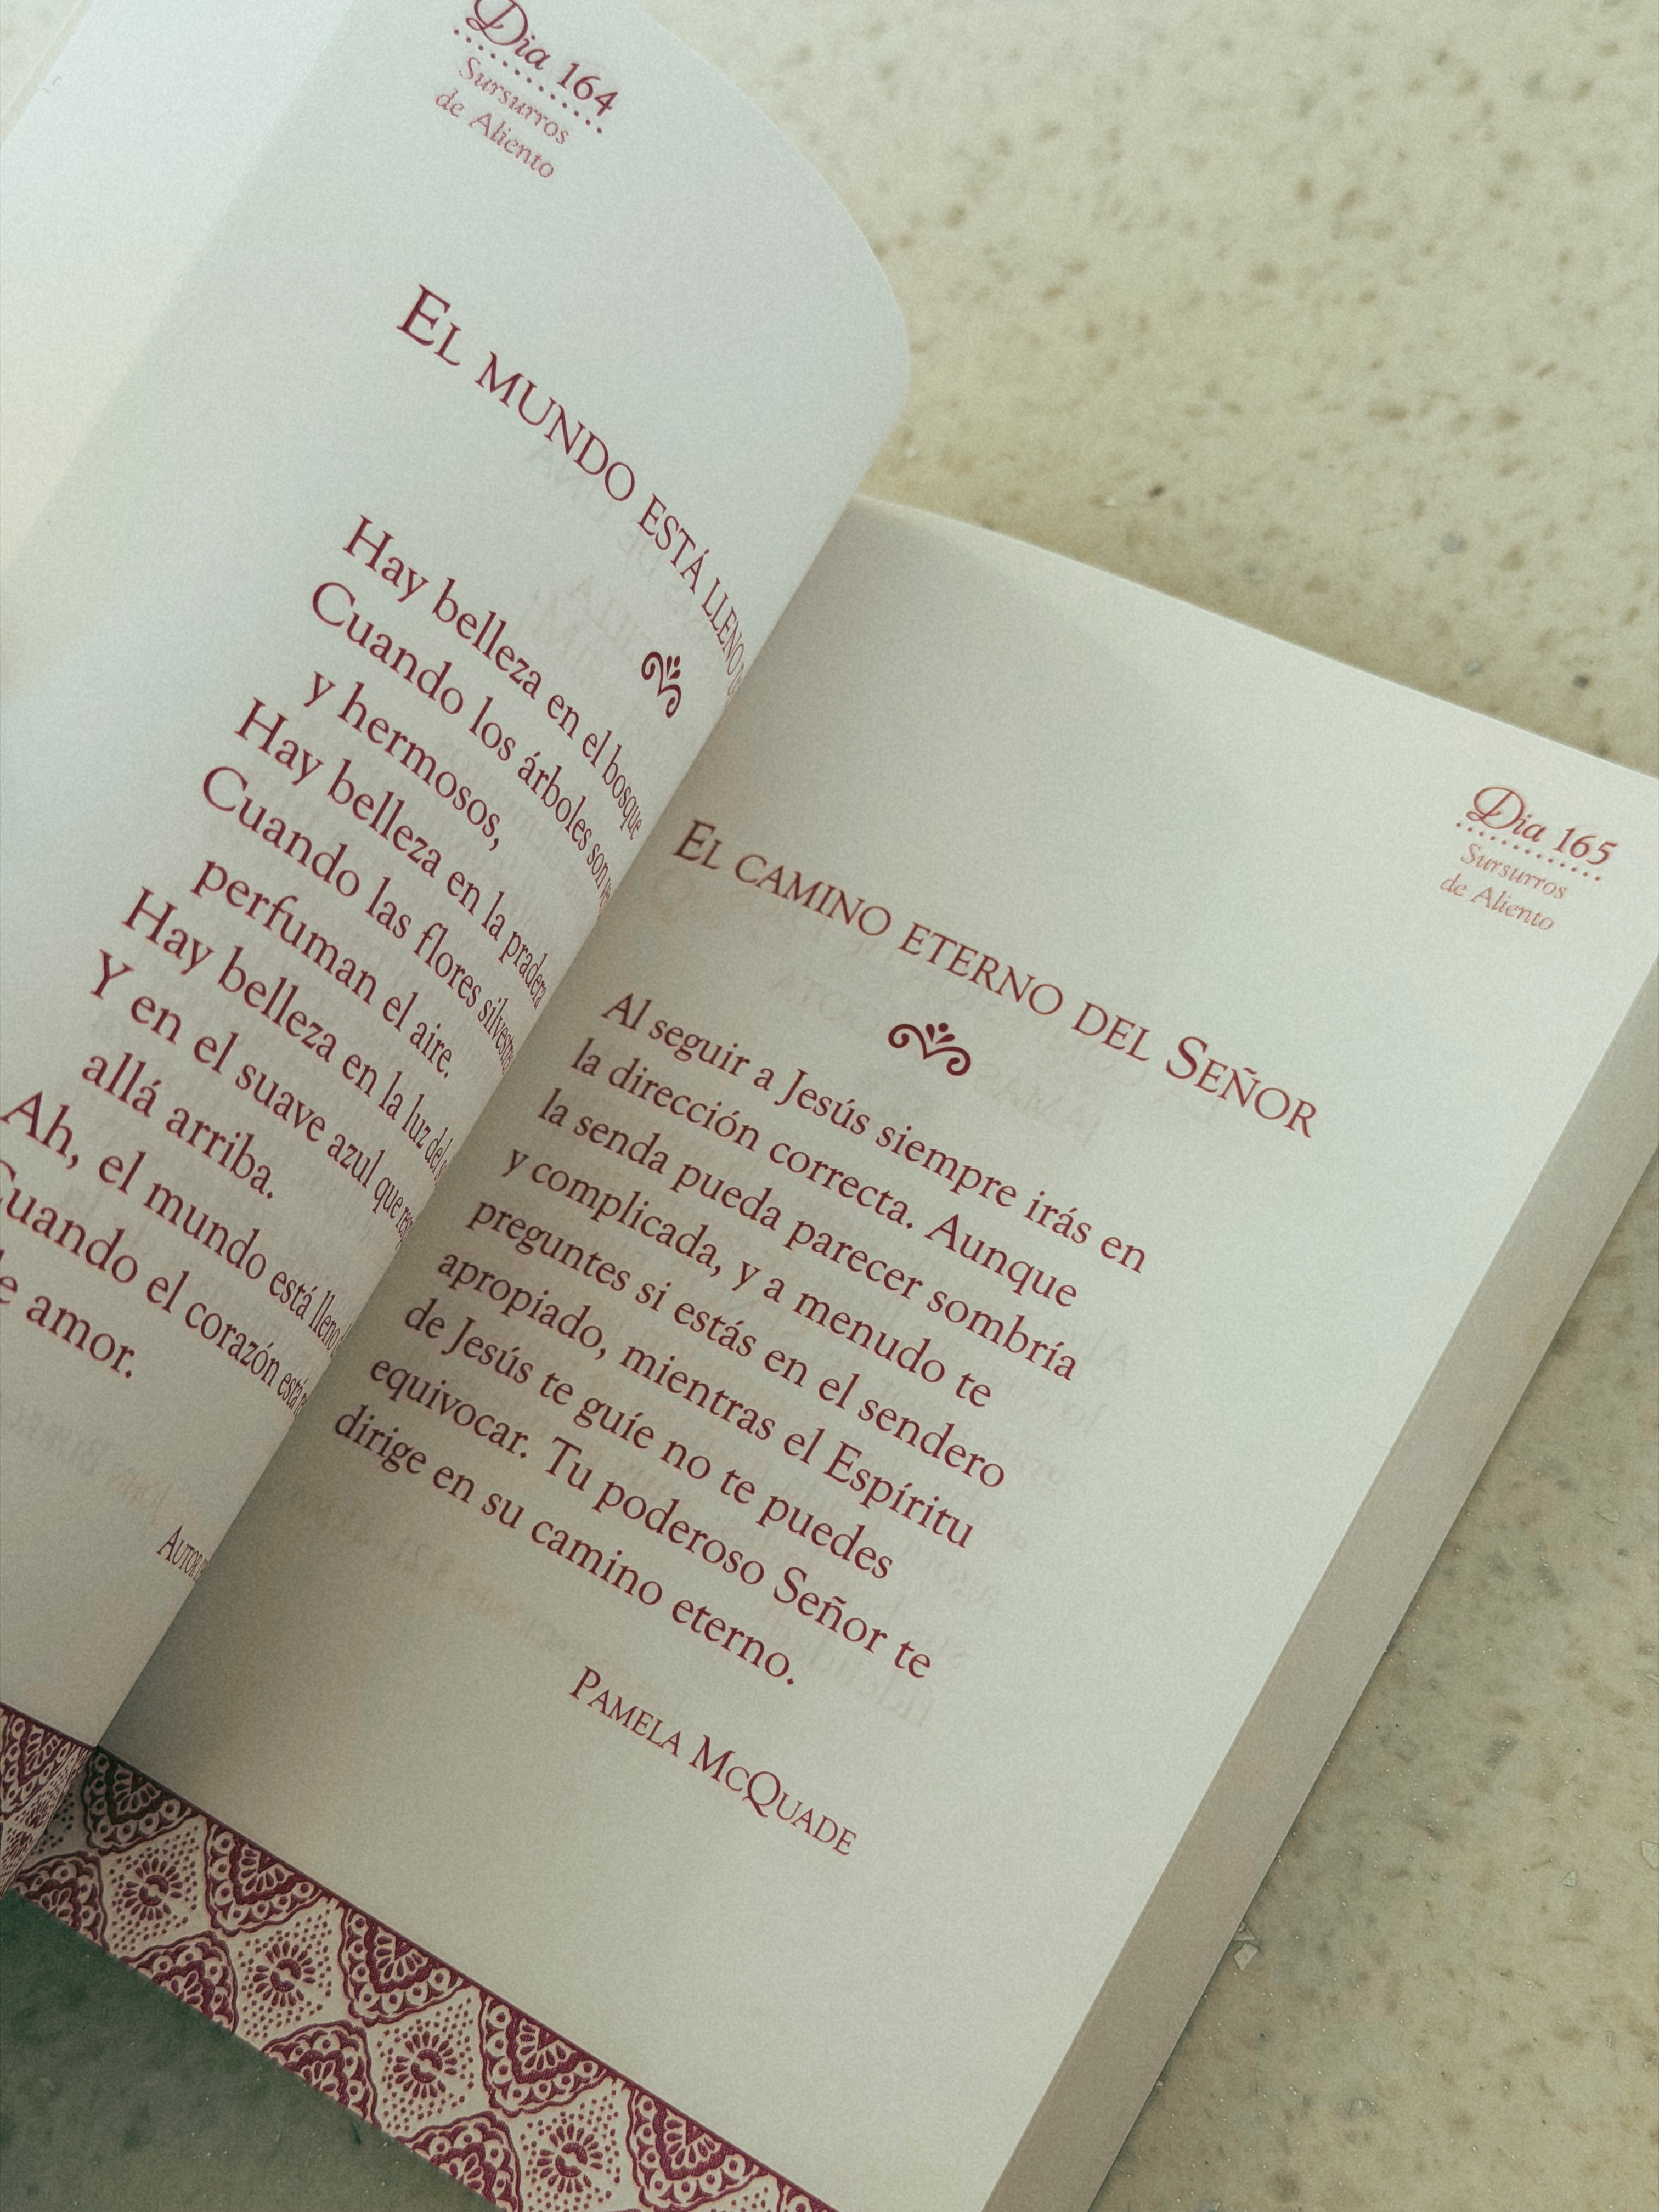 Dia 164
Sursurros
de Aliento
El mundo está lleno
Hay belleza en el bosque
Cuando los árboles son
y hermosos,
Hay belleza en la pradera
Cuando las flores silvestres
perfuman el aire.
Hay belleza en la luz del
Y en el suave azul que
allá arriba.
Ah, el mundo está lleno
Cuando el corazón está
de amor.
Autor
Dia 165
Sursurros
de Aliento
El camino eterno del Señor
Al seguir a Jesús siempre irás en
la dirección correcta. Aunque
la senda pueda parecer sombría
y complicada, y a menudo te
preguntes si estás en el sendero
apropiado, mientras el Espíritu
de Jesús te guíe no te puedes
equivocar. Tu poderoso Señor te
dirige en su camino eterno.
Pamela McQuade